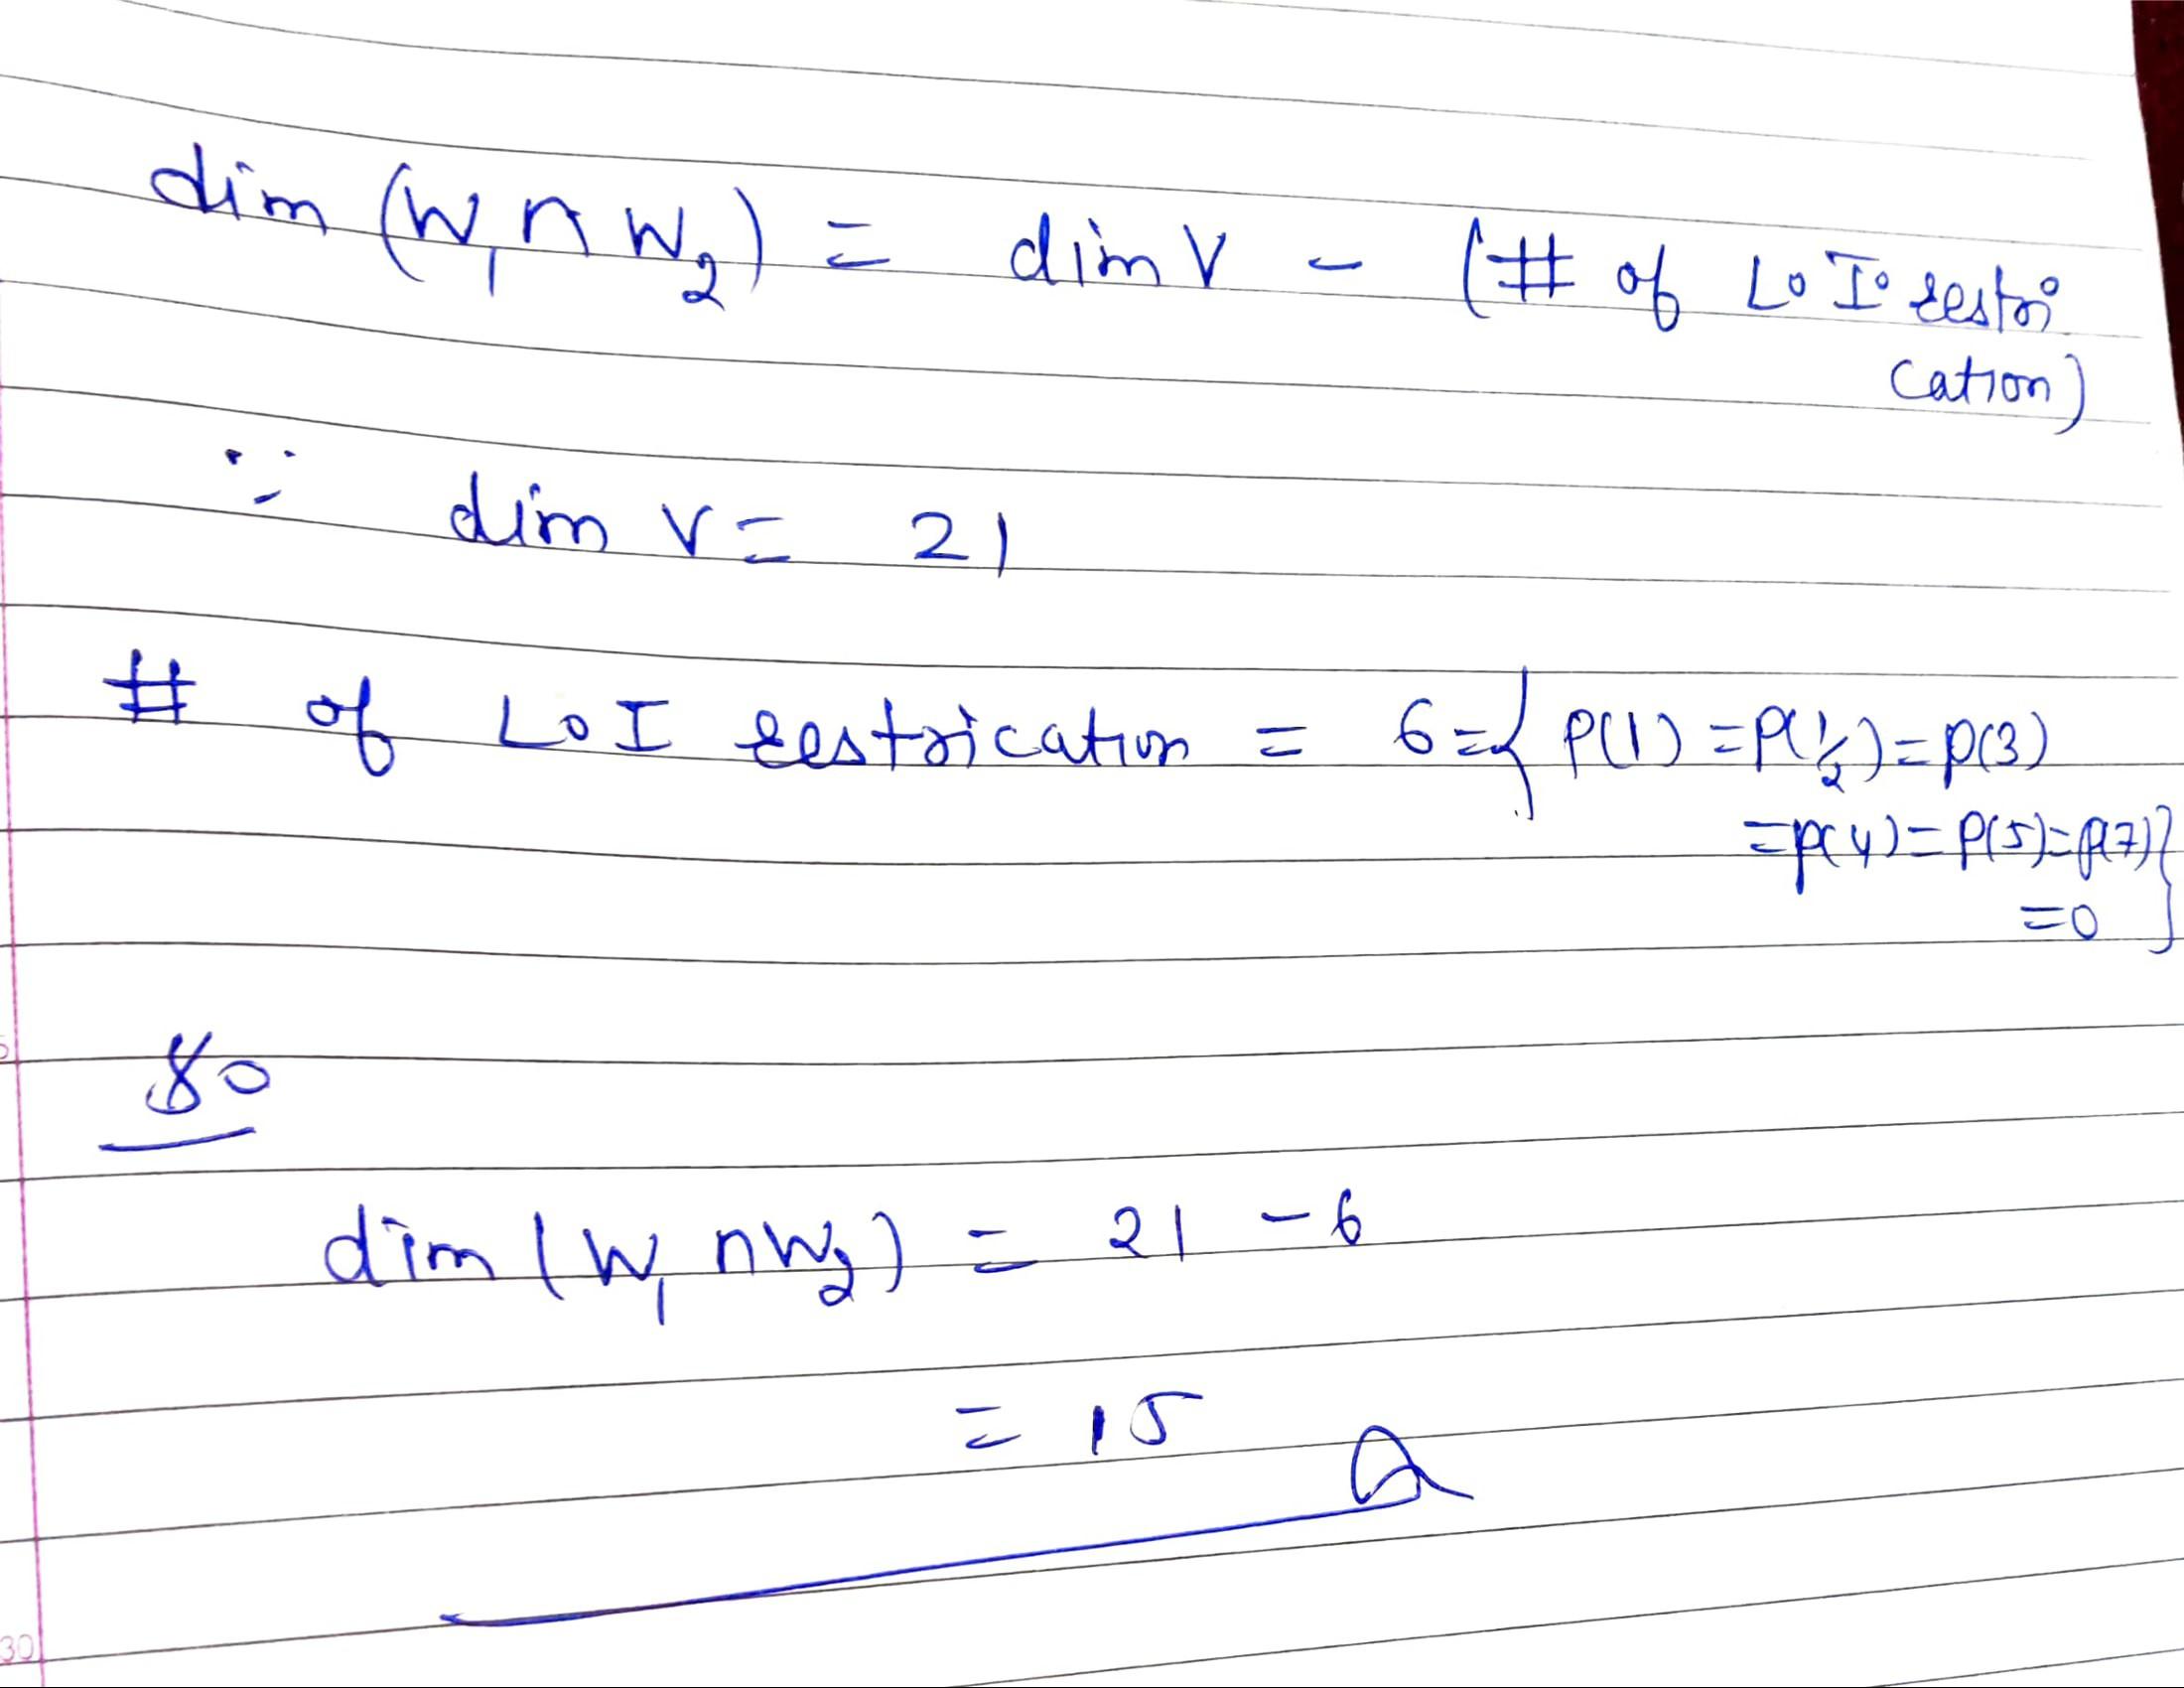 dim (W₁ ∩ W₂) = dim V - (# of L.I. restri
cation)
∵ dim V = 21
# of L.I restrication = 6 = { P(1) = P(1/2) = P(3)
= P(4) = P(5) = P(7) }
= 0
So
dim (W₁ ∩ W₂) = 21 - 6
= 15
30